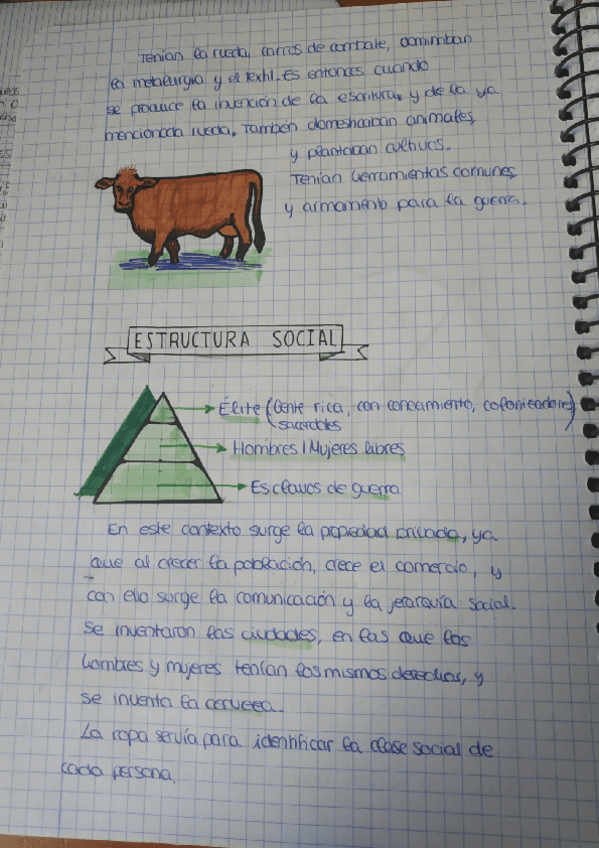 Tenían la rueda, carros de combate, dominaban
la metalurgia y el textil. Es entonces cuando
se produce la invención de la escritura, y de la ya
mencionada rueda. También domesticaban animales,
y plantaban cultivos.
Tenían herramientas comunes
y armamento para la guerra.
ESTRUCTURA SOCIAL
Élite (Gente rica, con conocimiento,
sacerdotes
Hombres/Mujeres libres
Esclavos de guerra
En este contexto surge la propiedad privada, ya
que al crecer la población, crece el comercio, y
con ello surge la comunicación y la jerarquía social.
Se inventaron las ciudades, en las que los
hombres y mujeres tenían los mismos derechos, y
se inventa la cerveza.
La ropa servía para identificar la clase social de
cada persona.